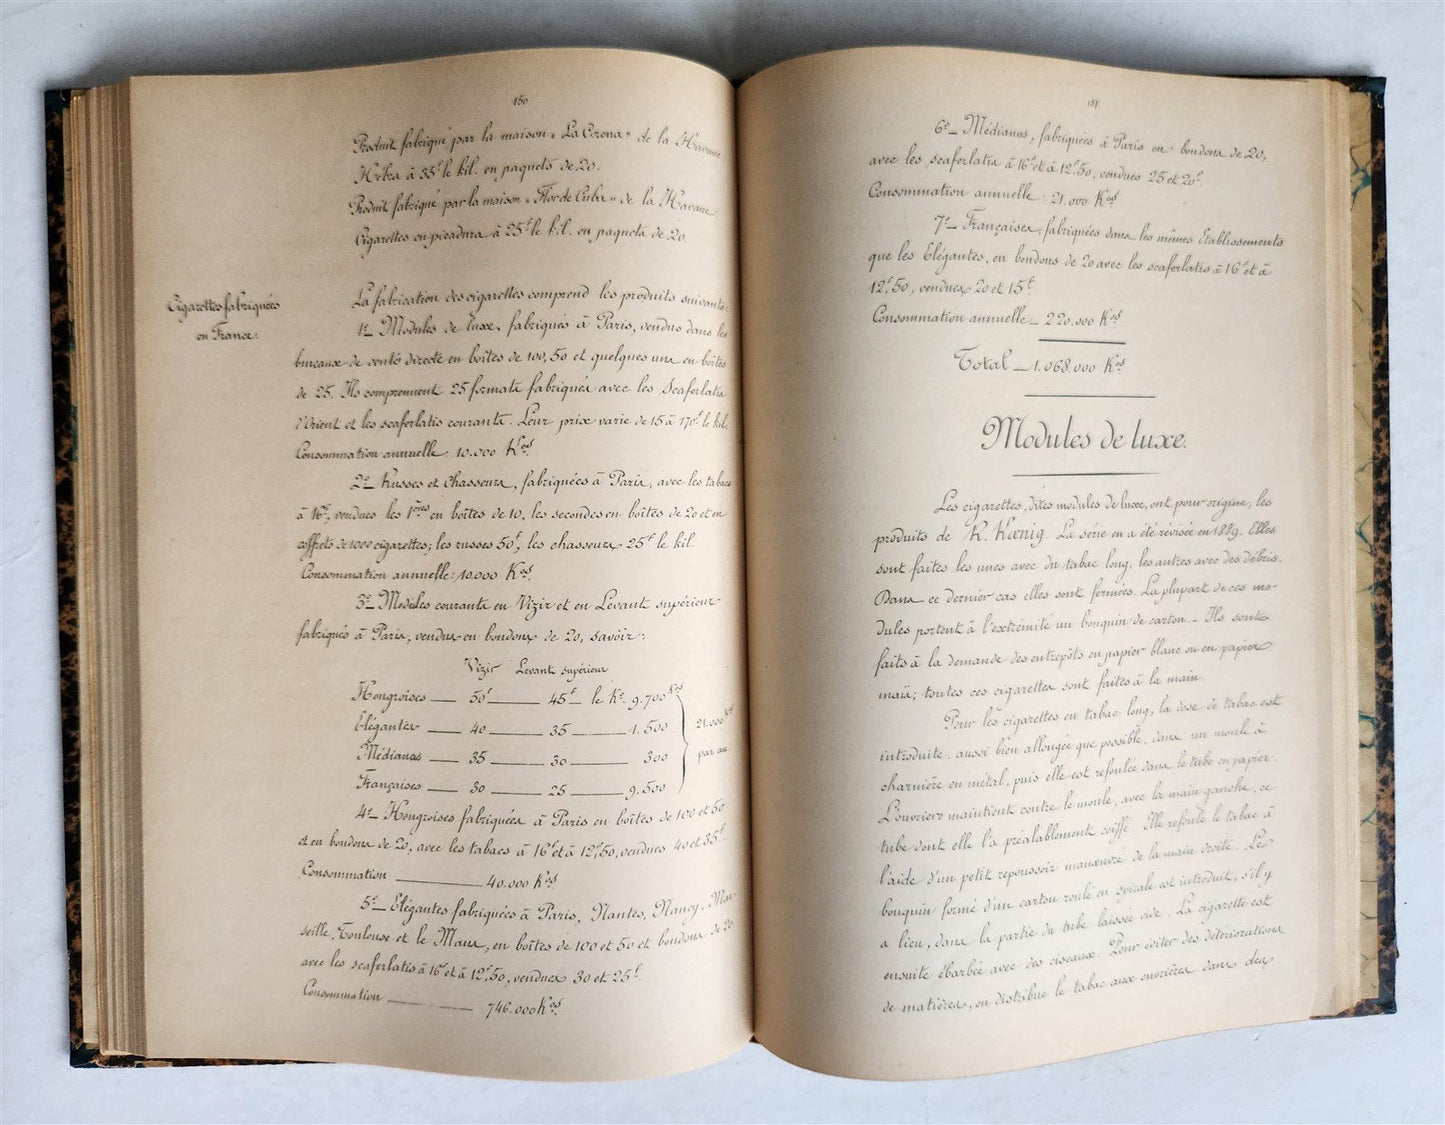 150
Produit fabriqué par la maison « La Corona » de la Havane.
Hebra à 35f le kil. en paquets de 20.
Produit fabriqué par la maison « Flor de Cuba » de la Havane.
Cigarettes en picadura à 25f le kil. en paquets de 20
Cigarettes fabriquées
en France.
La fabrication des cigarettes comprend les produits suivants:
1e_ Modules de luxe, fabriqués à Paris, vendus dans les
bureaux de vente directe en boîtes de 100, 50 et quelques uns en boîtes
de 25. Ils comprennent 25 formats fabriqués avec les Scaferlatis
d'Orient et les scaferlatis courants. Leur prix varie de 15 à 170f le kil.
Consommation annuelle: 10.000 Kos
2e_ Russes et Chasseurs, fabriquées à Paris, avec les tabacs
à 16f, vendues les 1ères en boîtes de 10, les secondes en boîtes de 20 et en
coffrets de 1000 cigarettes; les russes 50f, les chasseurs 25f le kil.
Consommation annuelle: 10.000 Kos
3e_ Modules courants en Vizir et en Levant supérieur
fabriqués à Paris, vendus en bondons de 20, savoir:
Vizir Levant supérieur
Hongroises — 50f — 45f — le Ko. 9.700 Kos
Élégantes — 40 — 35 — 1.500
Médianas — 35 — 30 — 300
Françaises — 30 — 25 — 9.500
21.000 Kos
par an.
4e_ Hongroises fabriquées à Paris en boîtes de 100 et 50
et en bondons de 20, avec les tabacs à 16f et à 12f,50, vendues 40 et 35f.
Consommation — 40.000 Kos
5e_ Élégantes fabriquées à Paris, Nantes, Nancy, Mar-
seille, Toulouse et le Mans, en boîtes de 100 et 50 et bondons de 20
avec les scaferlatis à 16f et à 12f,50, vendues 30 et 25f.
Consommation — 746.000 Kos
151
6e_ Médianas, fabriquées à Paris en bondons de 20,
avec les scaferlatis à 16f et à 12f,50, vendues 25 et 20f.
Consommation annuelle: 21.000 Kos
7e_ Françaises, fabriquées dans les mêmes Établissements
que les Élégantes, en bondons de 20 avec les scaferlatis à 16f et à
12f,50, vendues 20 et 15f.
Consommation annuelle_ 220.000 Kos
Total _ 1.068.000 Kos
Modules de luxe.
Les cigarettes, dites modules de luxe, ont pour origine, les
produits de R. Kœnig. La série en a été révisée en 1889. Elles
sont faites les unes avec du tabac long, les autres avec des débris.
Dans ce dernier cas elles sont fermées. La plupart de ces mo-
dules portent à l'extrémité un bouquin de carton. – Ils sont
faits à la demande des entrepôts en papier blanc ou en papier
maïs; toutes ces cigarettes sont faites à la main.
Pour les cigarettes en tabac long, la dose de tabac est
introduite, aussi bien allongée que possible, dans un moule à
charnière en métal, puis elle est refoulée dans le tube en papier.
L'ouvrière maintient contre le moule, avec la main gauche, ce
tube dont elle l'a préalablement coiffé. Elle refoule le tabac à
l'aide d'un petit repoussoir manœuvré de la main droite. Le
bouquin formé d'un carton roulé en spirale est introduit, s'il y
a lieu, dans la partie du tube laissée vide. La cigarette est
ensuite ébarbée avec des ciseaux. Pour éviter des détériorations
de matières, on distribue le tabac aux ouvrières dans des